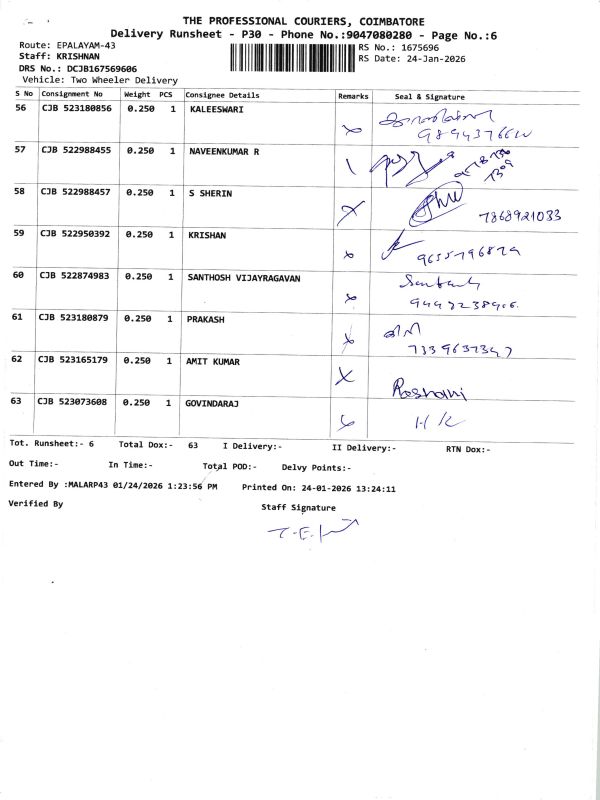 THE PROFESSIONAL COURIERS, COIMBATORE
Delivery Runsheet - P30 - Phone No.:9047080280 - Page No.:6
Route: EPALAYAM-43 RS No.: 1675696
Staff: KRISHNAN RS Date: 24-Jan-2026
DRS No.: DCJB167569606
Vehicle: Two Wheeler Delivery
S No Consignment No Weight PCS Consignee Details Remarks Seal & Signature
56 CJB 523180856 0.250 1 KALEESWARI
57 CJB 522988455 0.250 1 NAVEENKUMAR R
58 CJB 522988457 0.250 1 S SHERIN
7868921033
59 CJB 522950392 0.250 1 KRISHAN
60 CJB 522874983 0.250 1 SANTHOSH VIJAYRAGAVAN
61 CJB 523180879 0.250 1 PRAKASH
7339637347
62 CJB 523165179 0.250 1 AMIT KUMAR
Roshani
63 CJB 523073608 0.250 1 GOVINDARAJ
Tot. Runsheet:- 6 Total Dox:- 63 I Delivery:- II Delivery:- RTN Dox:-
Out Time:- In Time:- Total POD:- Delvy Points:-
Entered By :MALARP43 01/24/2026 1:23:56 PM Printed On: 24-01-2026 13:24:11
Verified By Staff Signature